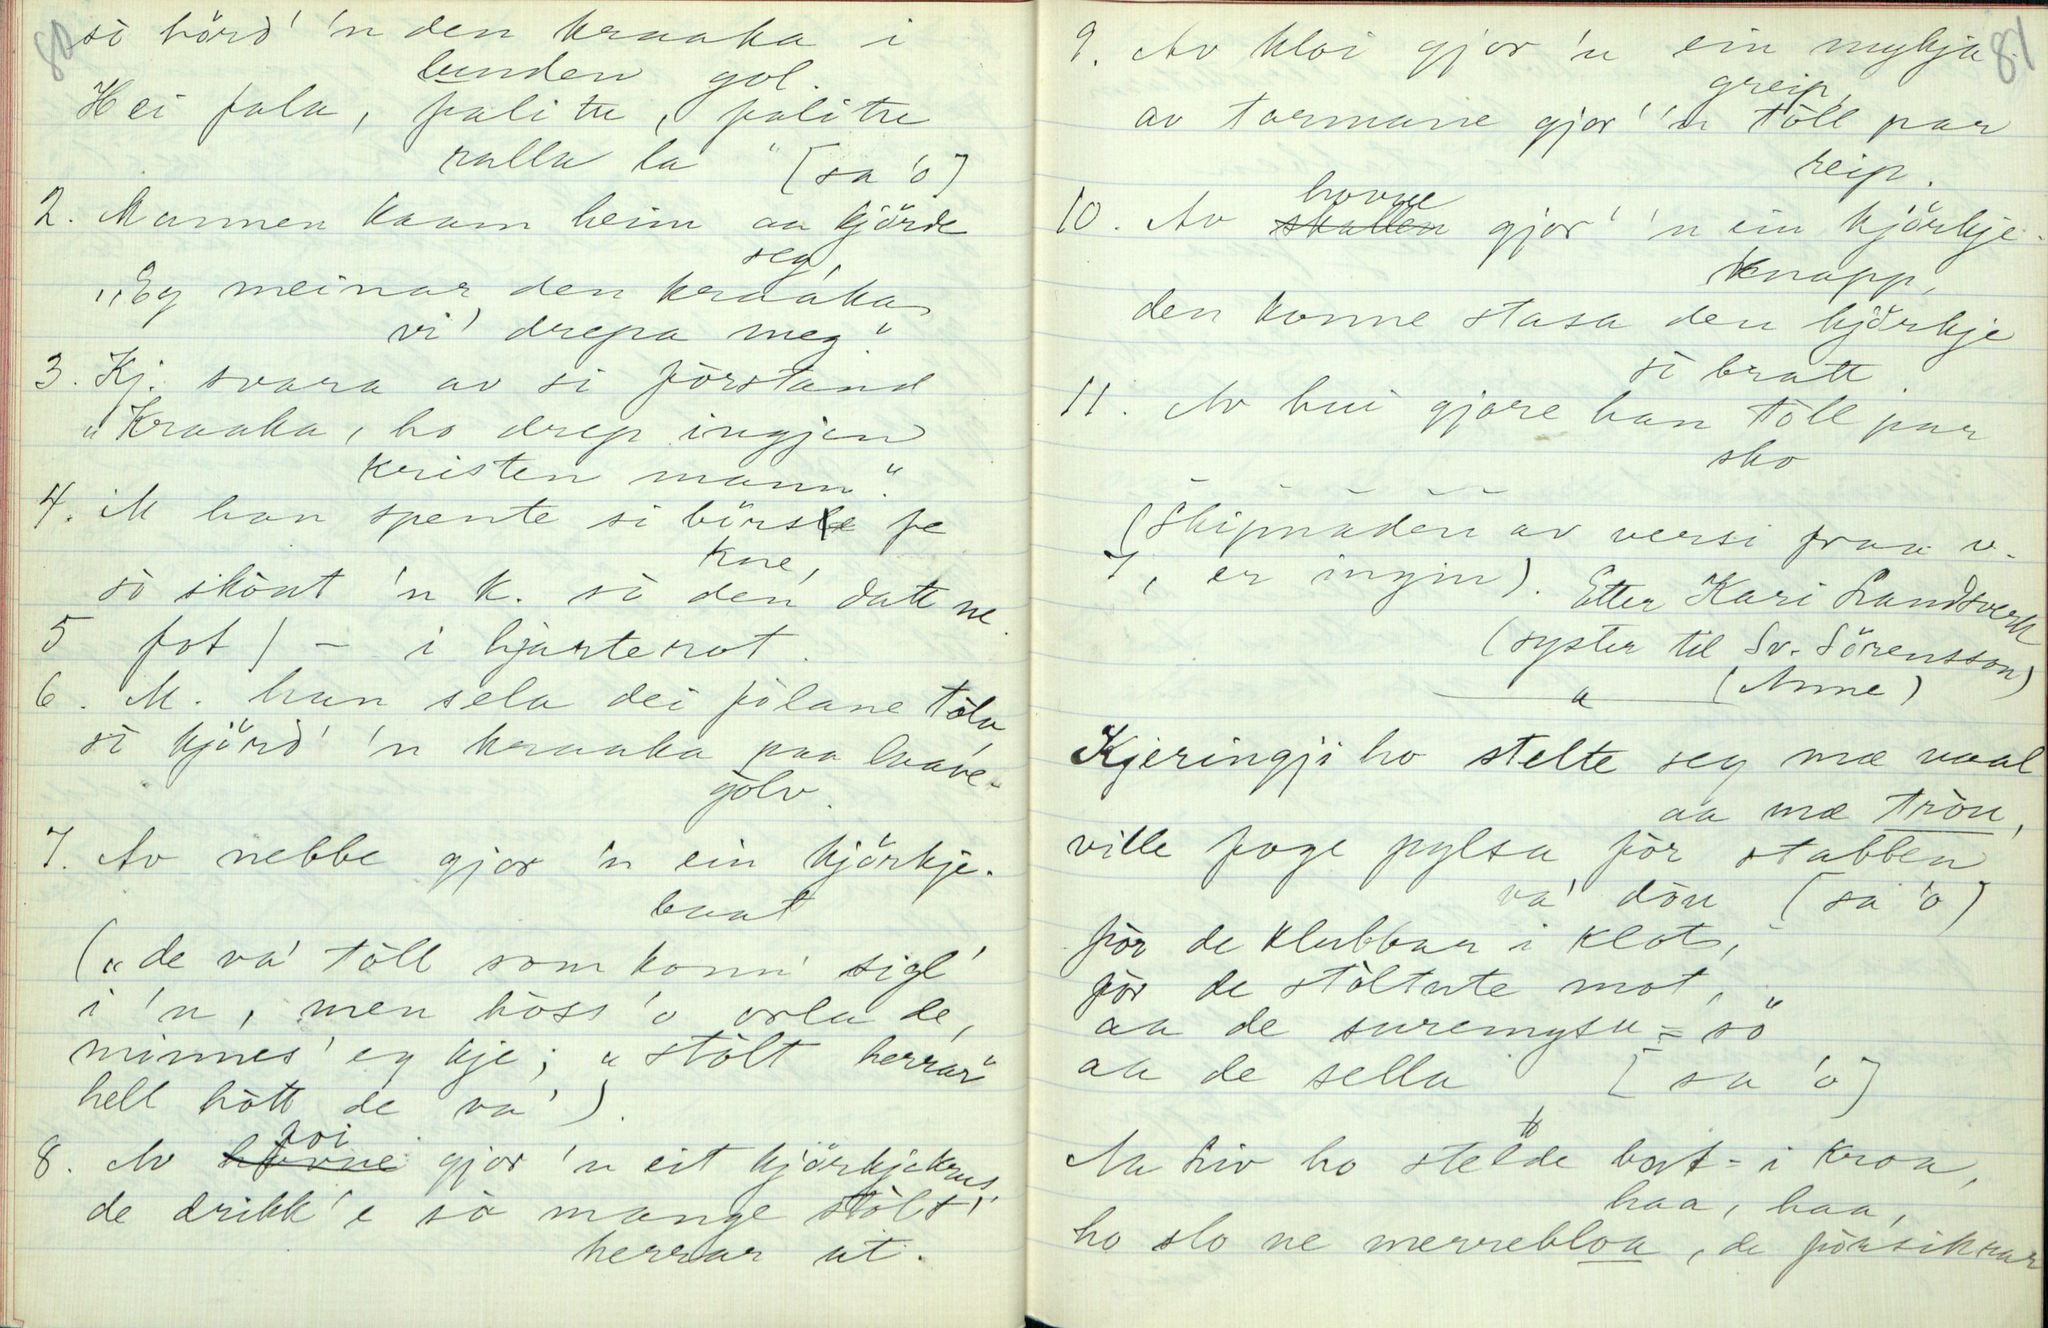 80
sò hörd' 'n den kraaka i
lunden gol.
Hei fala, falitu, falitu
ralla la" [sa 'o]
2. Mannen kaam heim aa kjörde
seg,
"Eg meinar den kraaka
vi' drepa meg."
3. Kj. svara av si forstand
"Kraaka, ho drep ingjen
kristen mann."
4. M han spente si börse fe
kne,
sò skònt 'n k. sò den datt ne.
5 fot) - i hjarterot.
6. M. han sela dei fòlane tòlv,
sò kjörd' 'n kraaka paa laave-
gòlv.
7. Av nebbe gjor 'n ein kjörkje-
baat
("de va' tòll som konn' sigl'
i 'n, men höss 'o orla de,
minnes' eg kje; "stòlt herrar"
hell hòtt de va').
8. Av hovne goi gjor 'n eit kjörkjekrus,
de drikk'e sò mange stòlt'
herrar ut.
81
9. Av kloi gjor 'n ein mykja
greip,
av tarmane gjor' 'n tòll par
reip.
10. Av skallen hovne gjor' 'n ein kjörkje-
knapp,
den konne stasa den kjörkje
sò bratt
11. Av hui gjore han tòll par
sko
(Skipnaden av versi fraa v.
7, er ingin). Etter Kari Landsverk
(syster til Sv. Sörensson)
" (Anne)
Kjeringji ho stelte seg mæ vaal
aa mæ tròn,
ville foge pylsa fòr stabben
va' dòn [sa 'o]
fòr de klubbar i klot,
fòr de stòltute mot,
aa de suremysu-sö"
aa de sella [sa 'o]
Aa Liv ho steltde bort-i kroa,
haa, haa,
ho slo ne merrebloa, de fòrsikrar